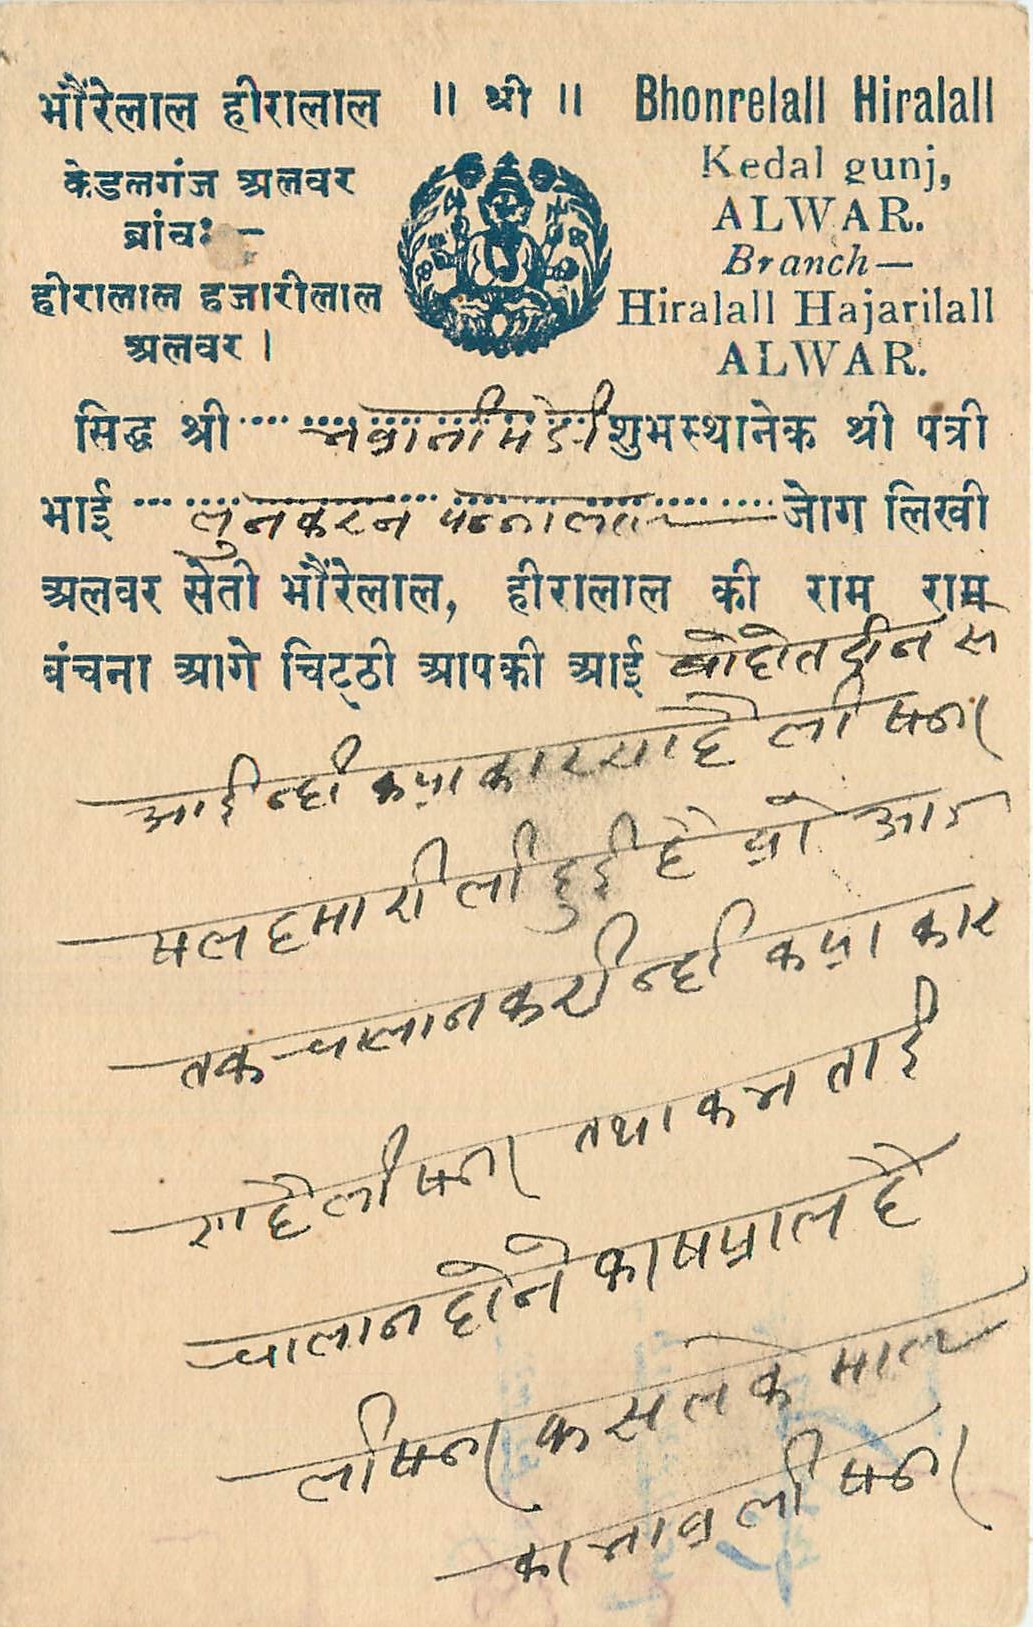 भौंरेलाल हीरालाल
केडलगंज अलवर
ब्रांच:—
हीरालाल हजारीलाल
अलवर।
॥ श्री ॥
Bhonrelall Hiralall
Kedal gunj,
ALWAR.
Branch—
Hiralall Hajarilall
ALWAR.
सिद्ध श्री शुभस्थानेक श्री पत्री
भाई लुनकरन पन्नालाल जोग लिखी
अलवर सेती भौंरेलाल, हीरालाल की राम राम
बंचना आगे चिट्ठी आपकी आई बोहोत दीन से
आई न्हीं क्या कारण है लीषना
हमारी ली हुई है
तक चालान करी न्हीं क्या कार
है लीषना तथा कब ताई
चालान होने का षयाल है
लीषना फसल के माल
का भाव लीषना